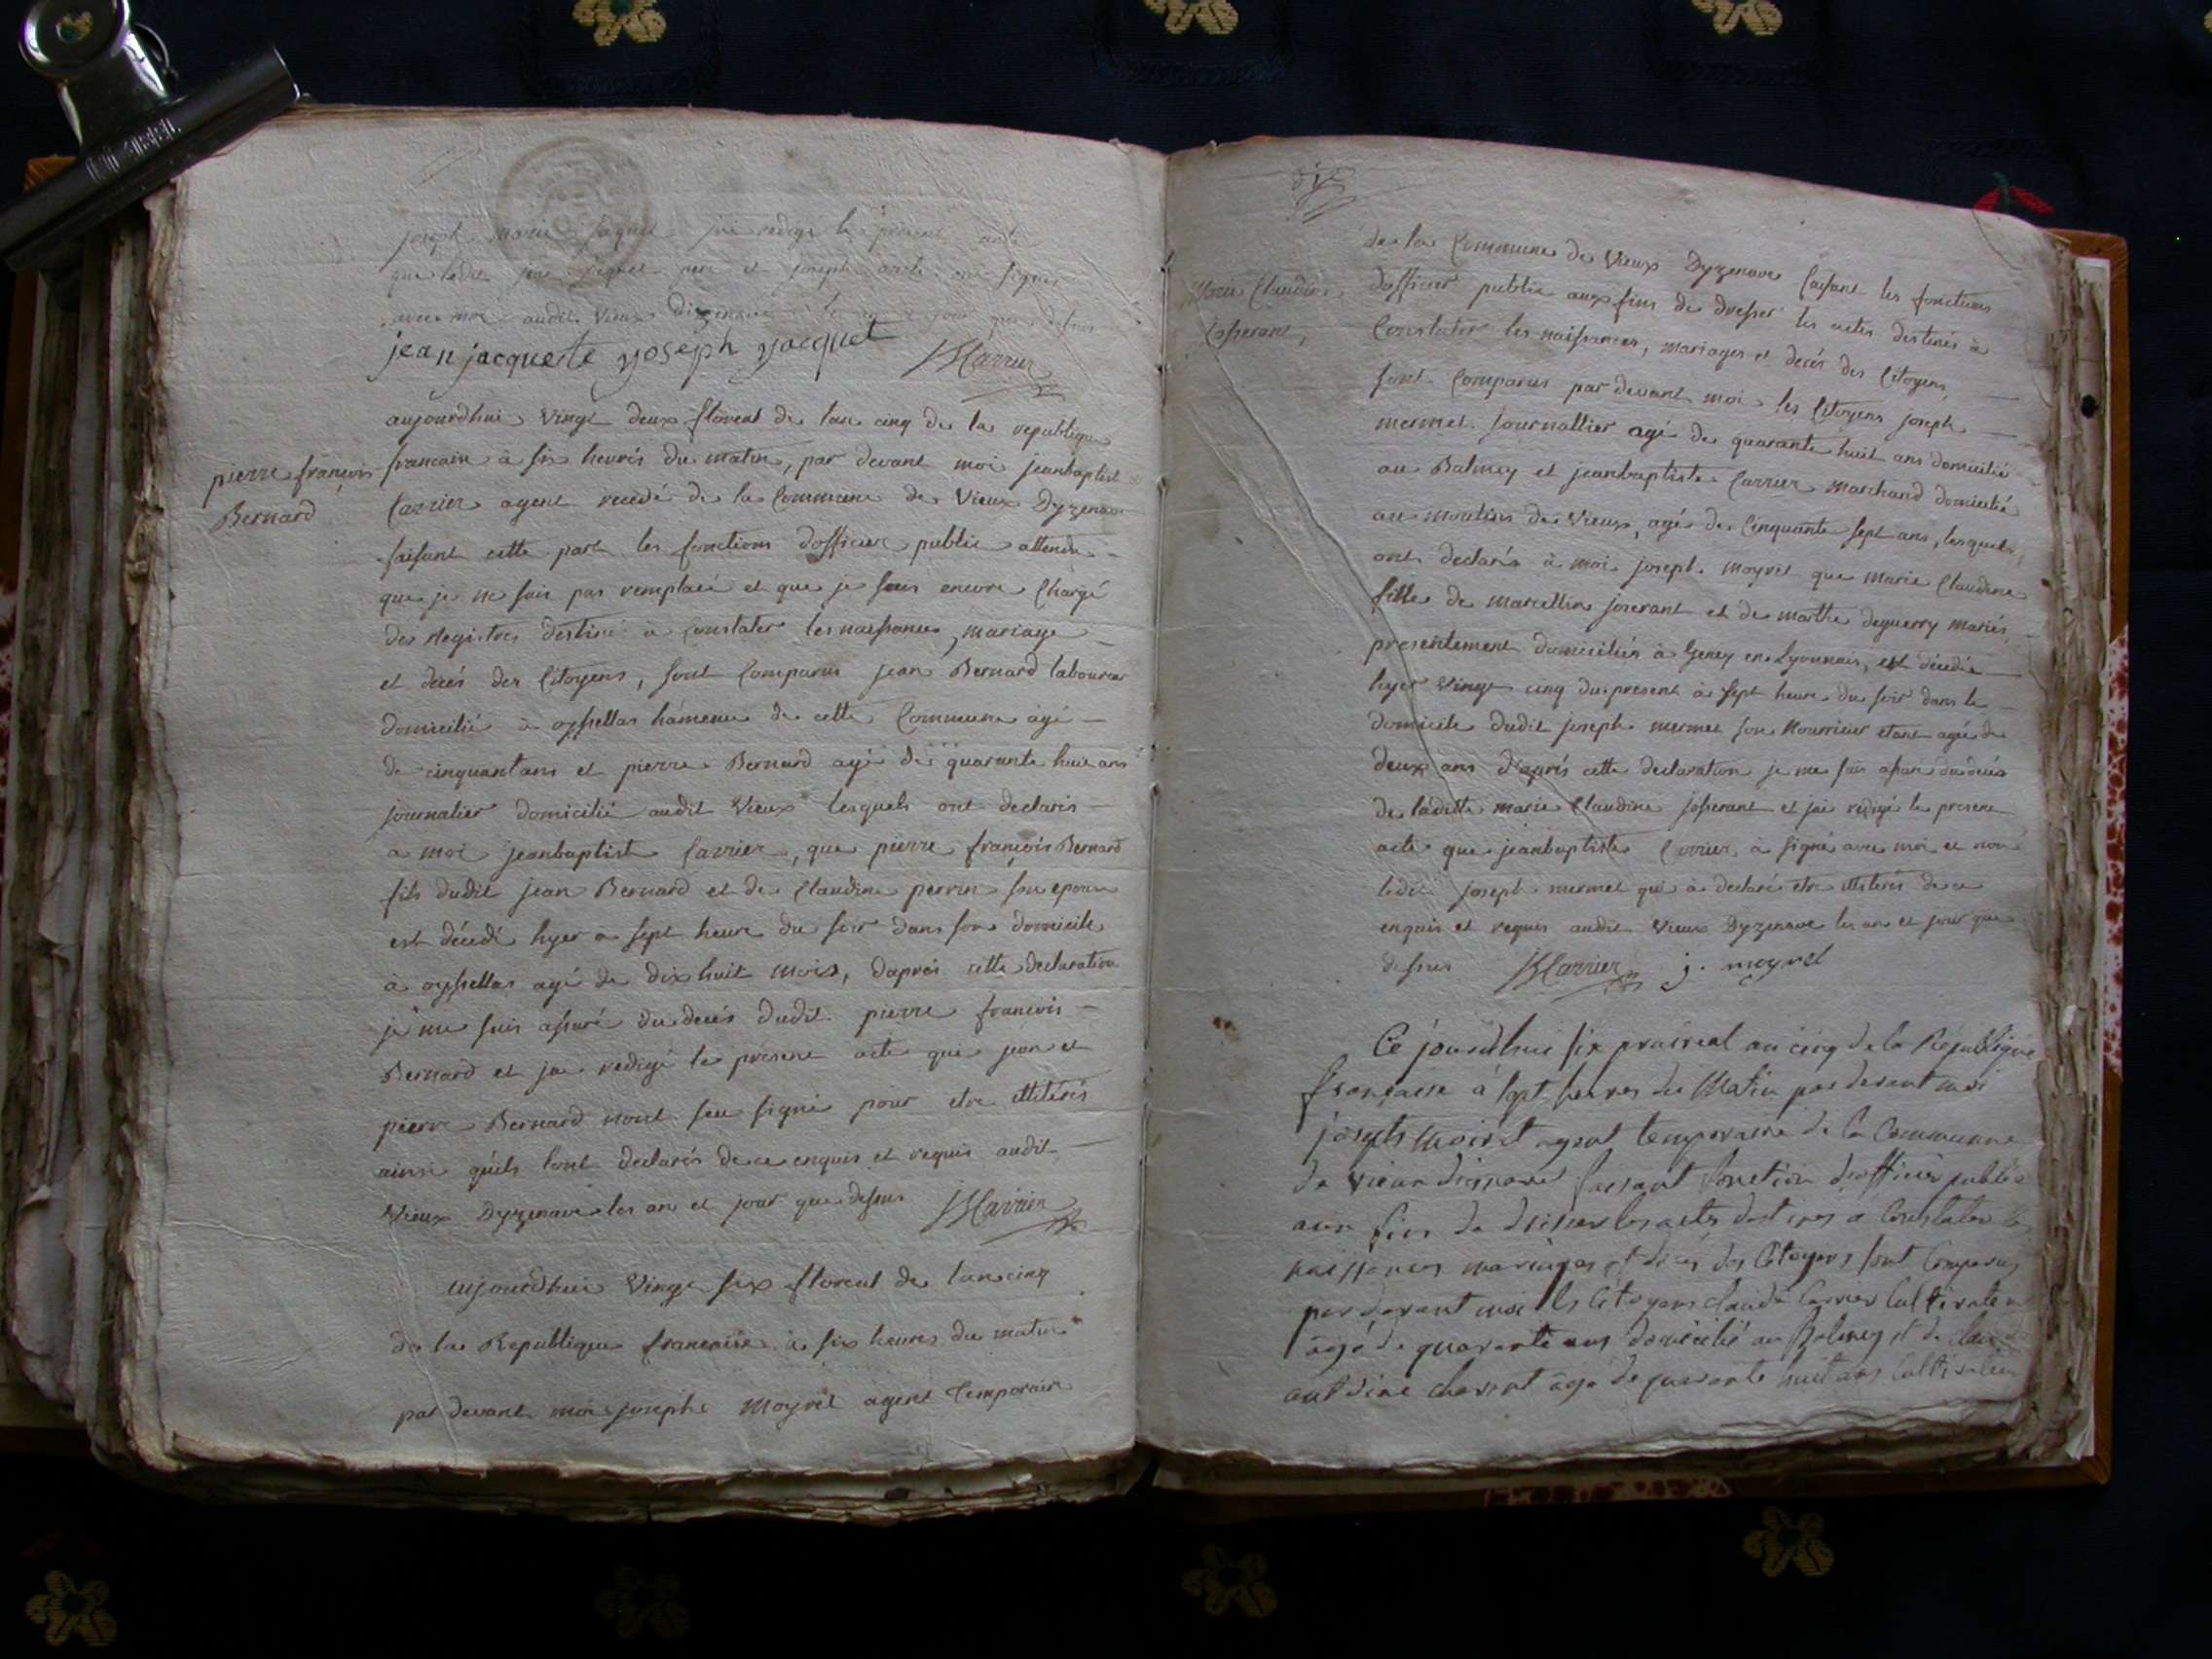 joseph marie jaquet jai redigé le present acte
que ledit jean jaquet pere et joseph oncle ont signés
avec moi audit Vieux Dizenave les an et jour que dessus
jean jacquette yoseph yacquet JBCarrier
pierre françois
Bernard
aujourdhui Vingt deux floreal de lan cinq de la republique
francaise à six heures du matin, par devant moi jeanbaptist
Carrier agent recedé de la Commune de Vieux Dyzenave
faisant cette part les fonctions dofficier public attendu
que je ne suis pas remplacé et que je suis encore Chargé
des Registres destiné a Constater les naissances, mariage
et decés des Citoyens, sont Comparus jean Bernard laboureur
domicilié à oysellas hameaue de cette Commune agé
de cinquant ans et pierre Bernard agé de quarante huit ans
journalier domicilié audit Vieux lesquels ont declarés
a moi jeanbaptist Carrier, que pierre françois Bernard
fils dudit jean Bernard et de Claudine perrin son epouse
est décédé hyer a sept heure du soir dans son domicile
à oysellas agé de dix huit mois, daprés cette declaration
je me suis assuré du decés dudit pierre françois
Bernard et jai redigé le present acte que jean et
pierre Bernard nont seu signé pour etre illitérés
ainsi quils lont declarés de ce enquis et requis audit
Vieux Dyzenave les an et jour que dessus JBCarrier
aujourdhui Vingt six floreal de lan cinq
de la Republique francaise à six heures du matin
par devant moi joseph Moyret agent temporaire
dix
de la Commune de Vieux Dyzenave faisant les fonctions
Marie Claudine
Josserant,
dofficier public aux fins de dresser les actes destinés à
Constater les naissances, mariages et decés des Citoyens,
sont Comparus par devant moi les Citoyens joseph
mermet Journallier agé de quarante huit ans domicilié
au Balmey et jeanbaptiste Carrier Marchand domicilié
au moulins de Vieux, agé de Cinquante sept ans, lesquels
ont declarés à moi joseph moyret que marie Claudine
fille de marcellin joserant et de marthe deguerry mariés
presentement domiciliés à Geney en Lyonnais, est décédée
hyer Vingt cinq du present à sept heure du soir dans le
domicile dudit joseph mermet son Nourricier etant agée de
deux ans d'aprés cette declaration je me suis assuré du decés
de ladette marie Claudine josserant et jai redigé le present
acte que jeanbaptiste Carrier à signé avec moi et non
ledit joseph mermet qui à declaré etre illiterés de ce
enquis et requis audit Vieux Dyzenave les an et jour que
dessus JBCarrier j. moyret
Ce jourdhui six prairial an cinq de la République
française à sept heures du Matin par devant moi
joseph Moiret agent temporaire de la Commune
de vieux dizenave faisant fonction d'officier public
aux fins de dresser les actes destinés a Constater les
naissances mariages et décés des Citoyens sont Comparus
par devant moi les Citoyens claude Carrier Cultivateur
agé de quarante ans domicilié au Balmey et de claude
agé de quarante huit ans Cultivateur